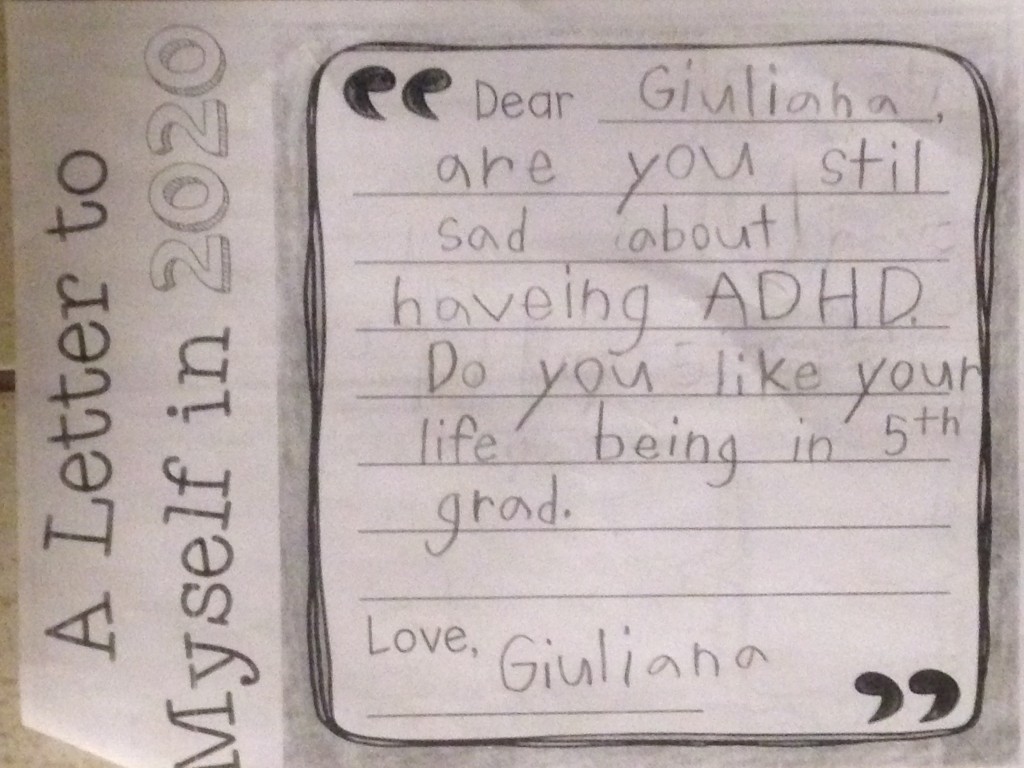 A Letter to
Myself in 2020
“ Dear Giuliana,
are you stil
sad about
haveing ADHD.
Do you like your
life being in 5th
grad.
Love, Giuliana ”